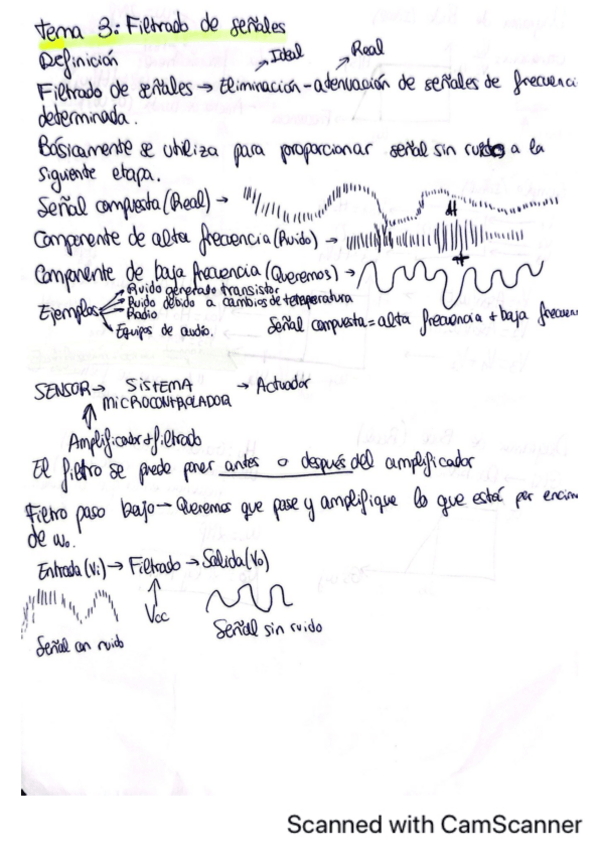 Tema 3: Filtrado de señales
Definición
Ideal
Real
Filtrado de señales → Eliminación-atenuación de señales de frecuenci
determinada.
Básicamente se utiliza para proporcionar señal sin ruido a la
siguiente etapa.
Señal compuesta (Real) →
Componente de alta frecuencia (Ruido) →
Componente de baja frecuencia (Queremos) →
Ejemplos
Ruido generado transistor
Ruido debido a cambios de temperatura
Radio
Equipos de audio.
Señal compuesta = alta frecuencia + baja frecuen
SENSOR → SISTEMA → Actuador
MICROCONTROLADOR
Amplificador + filtrado
El filtro se puede poner antes o después del amplificador
Filtro paso bajo — Queremos que pase y amplifique lo que está por encim
de ω₀.
Entrada (Vi) → Filtrado → Salida (Vo)
Vcc
Señal con ruido
Señal sin ruido
Scanned with CamScanner